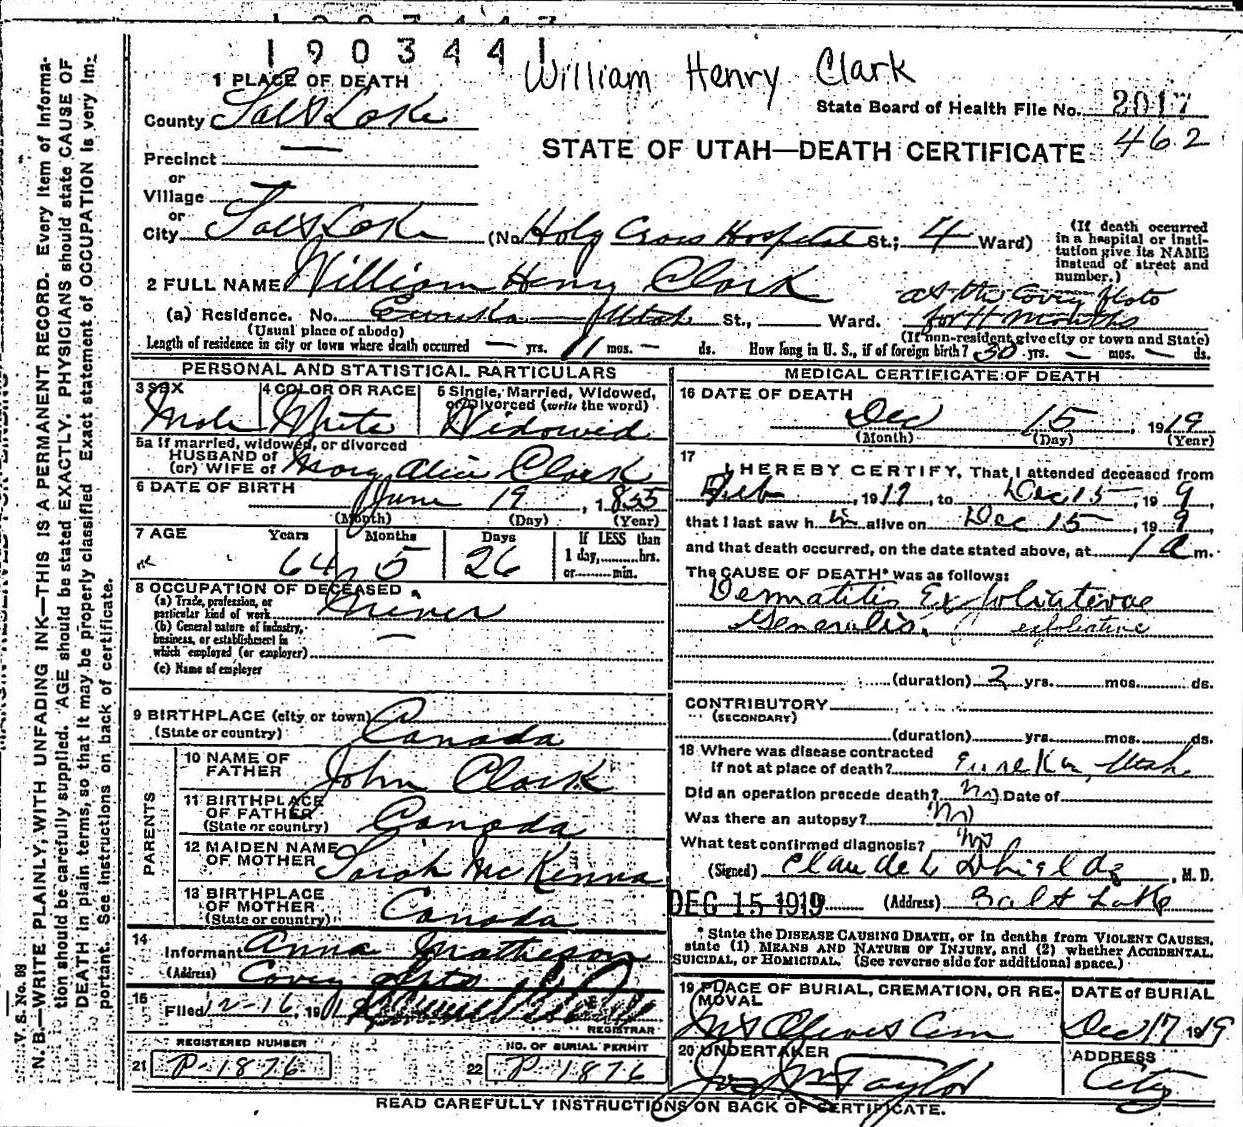 1903441
William Henry Clark
1 PLACE OF DEATH
County Salt Lake
State Board of Health File No. 2017
462
STATE OF UTAH—DEATH CERTIFICATE
Precinct
or
Village
or
City Salt Lake (No Holy Cross Hospital St.; 4 Ward)
(If death occurred in a hospital or institution give its NAME instead of street and number.)
2 FULL NAME William Henry Clark
at the Covey Flats
for 11 months
(a) Residence. No. Eureka — Utah St., Ward.
(Usual place of abode)
(If non-resident give city or town and State)
Length of residence in city or town where death occurred — yrs. 11 mos. — ds. How long in U. S., if of foreign birth? 50 yrs. — mos. — ds.
PERSONAL AND STATISTICAL PARTICULARS
3 SEX
Male
4 COLOR OR RACE
White
5 Single, Married, Widowed, or Divorced (write the word)
Widowed
5a If married, widowed, or divorced
HUSBAND of
(or) WIFE of Mary Alice Clark
6 DATE OF BIRTH
June 19, 1855
(Month) (Day) (Year)
7 AGE Years Months Days
64 5 26
If LESS than
1 day, hrs.
or min.
8 OCCUPATION OF DECEASED
(a) Trade, profession, or
particular kind of work Miner
(b) General nature of industry,
business, or establishment in
which employed (or employer)
(c) Name of employer
9 BIRTHPLACE (city or town)
(State or country) Canada
PARENTS
10 NAME OF
FATHER John Clark
11 BIRTHPLACE
OF FATHER
(State or country) Canada
12 MAIDEN NAME
OF MOTHER Sarah McKenna
13 BIRTHPLACE
OF MOTHER
(State or country) Canada
14
Informant Anna Matheson
(Address) Covey Apts
15
Filed 12-16, 19
REGISTRAR
REGISTERED NUMBER
21 P-1876
NO. OF BURIAL PERMIT
22 P-1876
MEDICAL CERTIFICATE OF DEATH
16 DATE OF DEATH
Dec 15, 1919
(Month) (Day) (Year)
17
I HEREBY CERTIFY, That I attended deceased from
Feb, 1919, to Dec 15, 19 9,
that I last saw h im alive on Dec 15, 19 9
and that death occurred, on the date stated above, at 1 a m.
The CAUSE OF DEATH* was as follows:
Dermatitis Exfoliativae
Generalis. exfoliative
(duration) 2 yrs. mos. ds.
CONTRIBUTORY
(SECONDARY)
(duration) yrs. mos. ds.
18 Where was disease contracted
if not at place of death? Eureka, Utah
Did an operation precede death? No Date of
Was there an autopsy? No
What test confirmed diagnosis? No
(Signed) Claude L Shields, M. D.
DEC 15 1919 (Address) Salt Lake
* State the DISEASE CAUSING DEATH, or in deaths from VIOLENT CAUSES,
state (1) MEANS AND NATURE OF INJURY, and (2) whether ACCIDENTAL,
SUICIDAL, or HOMICIDAL. (See reverse side for additional space.)
19 PLACE OF BURIAL, CREMATION, OR REMOVAL
Mt Olivet Cem
DATE of BURIAL
Dec 17 1919
20 UNDERTAKER
Jos Wm Taylor
ADDRESS
City
READ CAREFULLY INSTRUCTIONS ON BACK OF CERTIFICATE.
V. S. No. 99
N. B.—WRITE PLAINLY, WITH UNFADING INK—THIS IS A PERMANENT RECORD. Every item of information should be carefully supplied. AGE should be stated EXACTLY. PHYSICIANS should state CAUSE OF DEATH in plain terms, so that it may be properly classified. Exact statement of OCCUPATION is very important. See instructions on back of certificate.